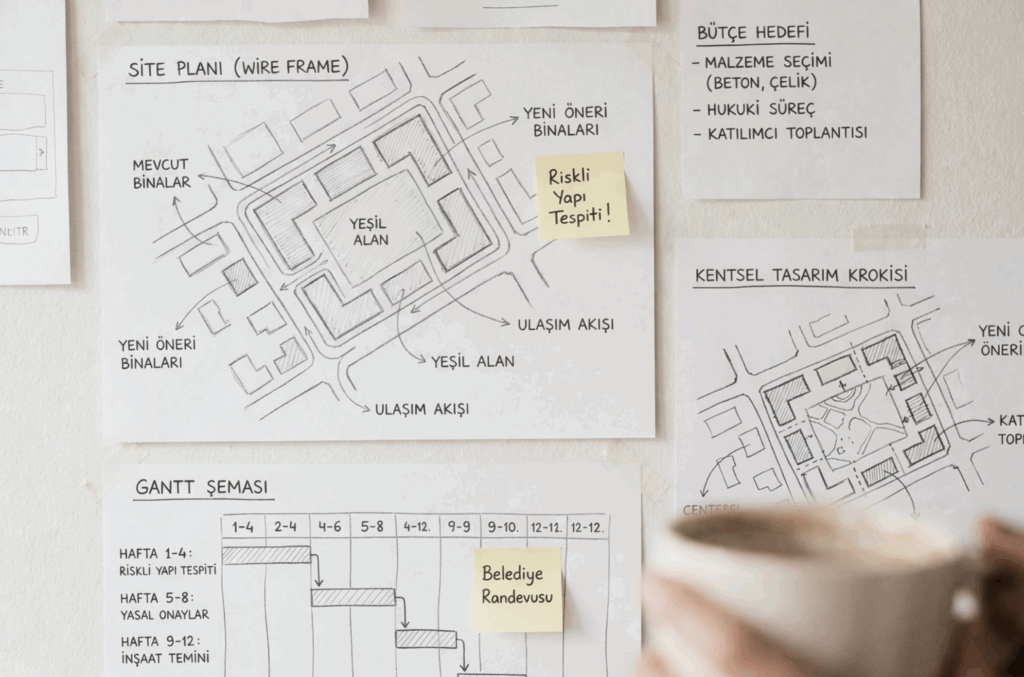 SİTE PLANI (WIRE FRAME)
MEVCUT
BİNALAR
YENİ ÖNERİ
BİNALARI
YEŞİL
ALAN
YENİ ÖNERİ
BİNALARI
ULAŞIM AKIŞI
YEŞİL ALAN
ULAŞIM AKIŞI
Riskli
Yapı
Tespiti!
BÜTÇE HEDEFİ
- MALZEME SEÇİMİ
(BETON, ÇELİK)
- HUKUKİ SÜREÇ
- KATILIMCI TOPLANTISI
KENTSEL TASARIM KROKİSİ
YENİ
ÖNERİ
GANTT ŞEMASI
1-4 2-4 4-6 5-8 4-12. 9-9 9-10. 12-12. 12-12.
HAFTA 1-4:
RİSKLİ YAPI TESPİTİ
HAFTA 5-8:
YASAL ONAYLAR
HAFTA 9-12:
İNŞAAT TEMİNİ
Belediye
Randevusu